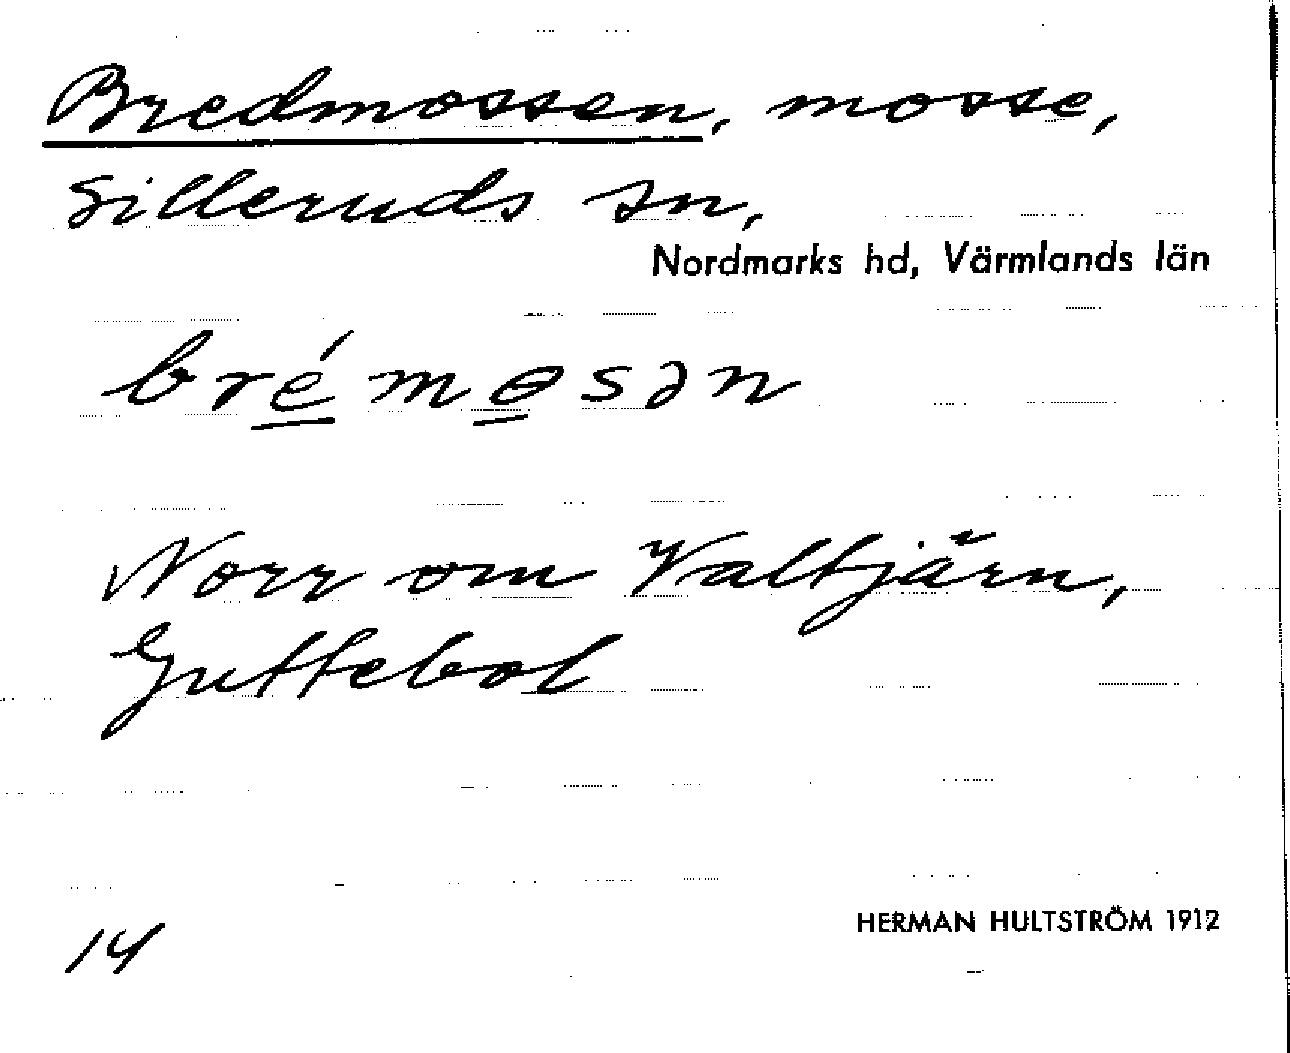 Bredmossen, mosse,
Silleruds sn,
Nordmarks hd, Värmlands län
brémɵsən
Norr om Valtjärn,
Guttebol
14
HERMAN HULTSTRÖM 1912